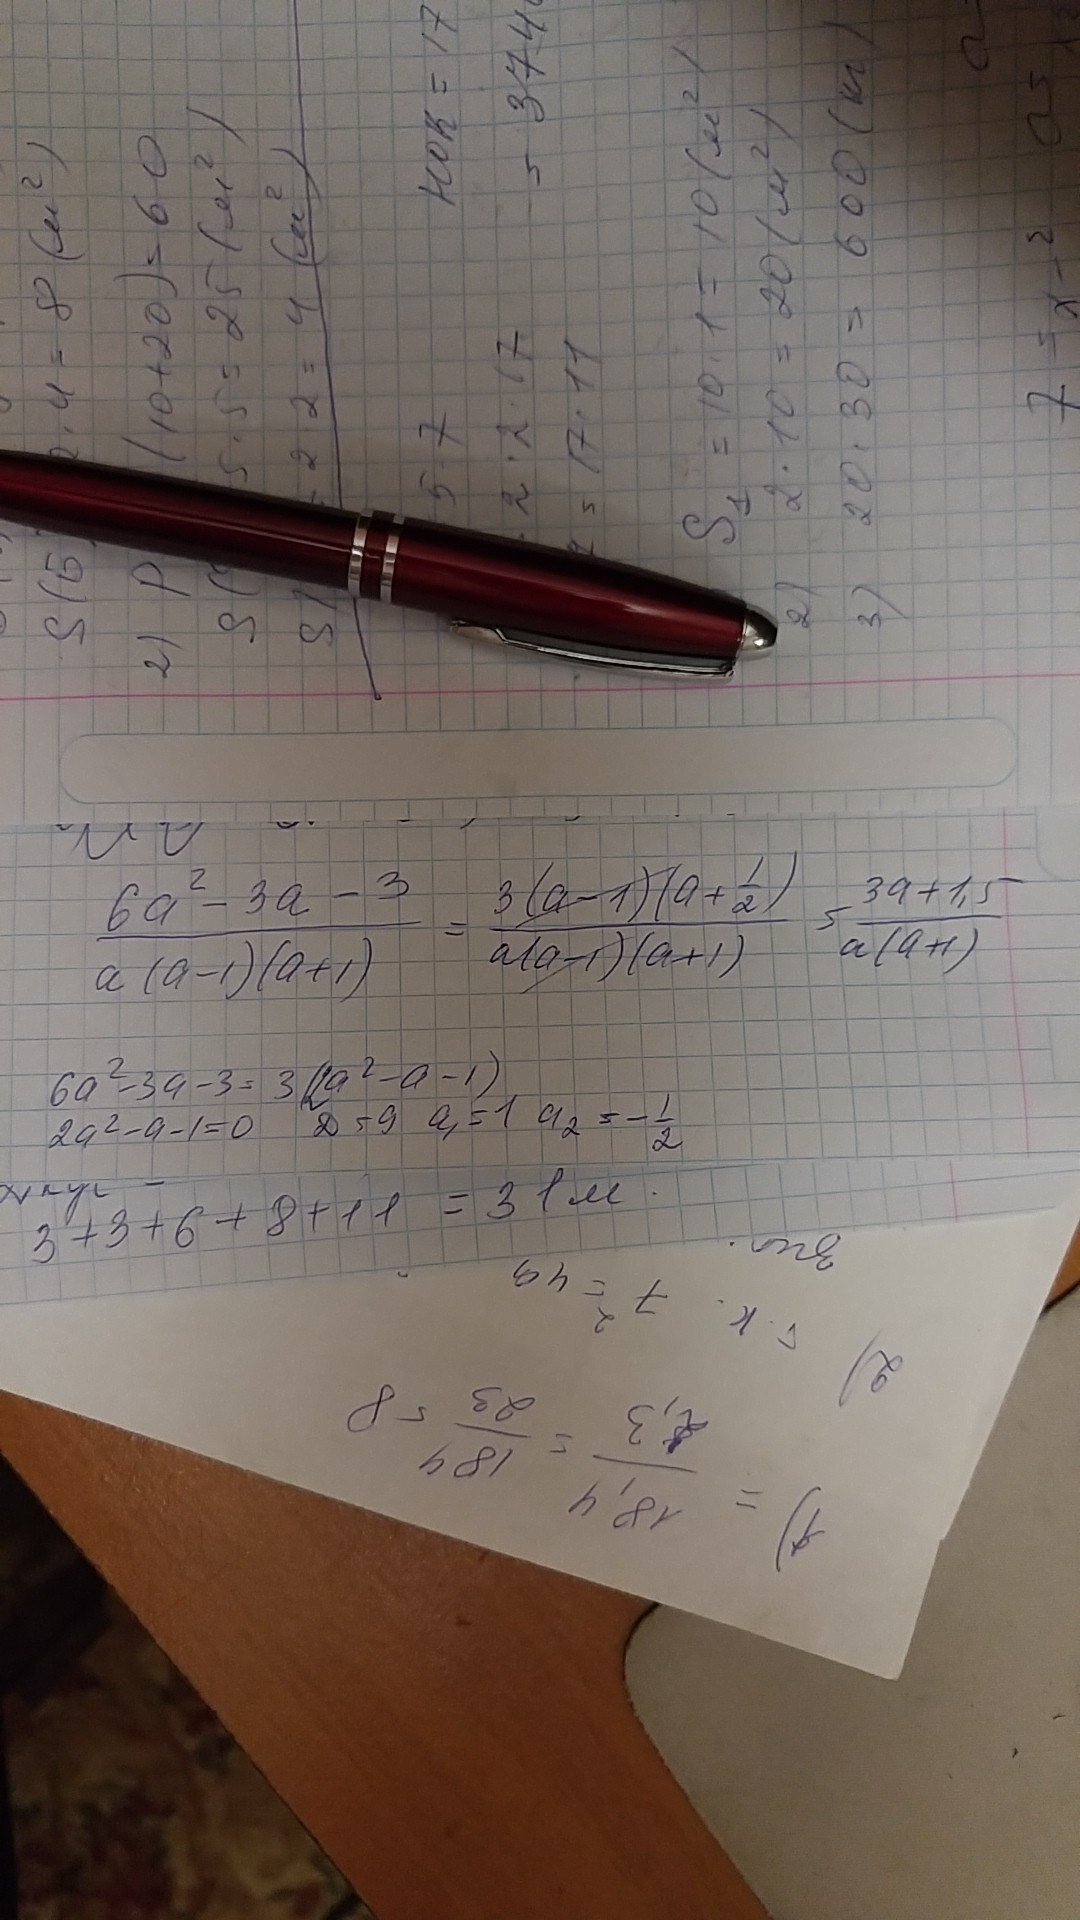 4 = 8 (м²)
2) P (10+20) = 60
5·5 = 25 (м²)
2·2 = 4 (м²)
5·7 НОК = 17
2·2·17 = 374
= 17·11
S₁ = 10·1 = 10 (м²)
2) 2·10 = 20 (м²)
3) 20·30 = 600 (кг)
(6a² - 3a - 3)/(a(a-1)(a+1)) = (3(a-1)(a+1/2))/(a(a-1)(a+1)) = (3a+1,5)/(a(a+1))
6a²-3a-3 = 3(2a²-a-1)
2a²-a-1=0 D=9 a₁=1 a₂=-1/2
3+3+6+8+11 = 31м.
1) = 18,4/2,3 = 184/23 = 8
2) т.к. 7² = 49